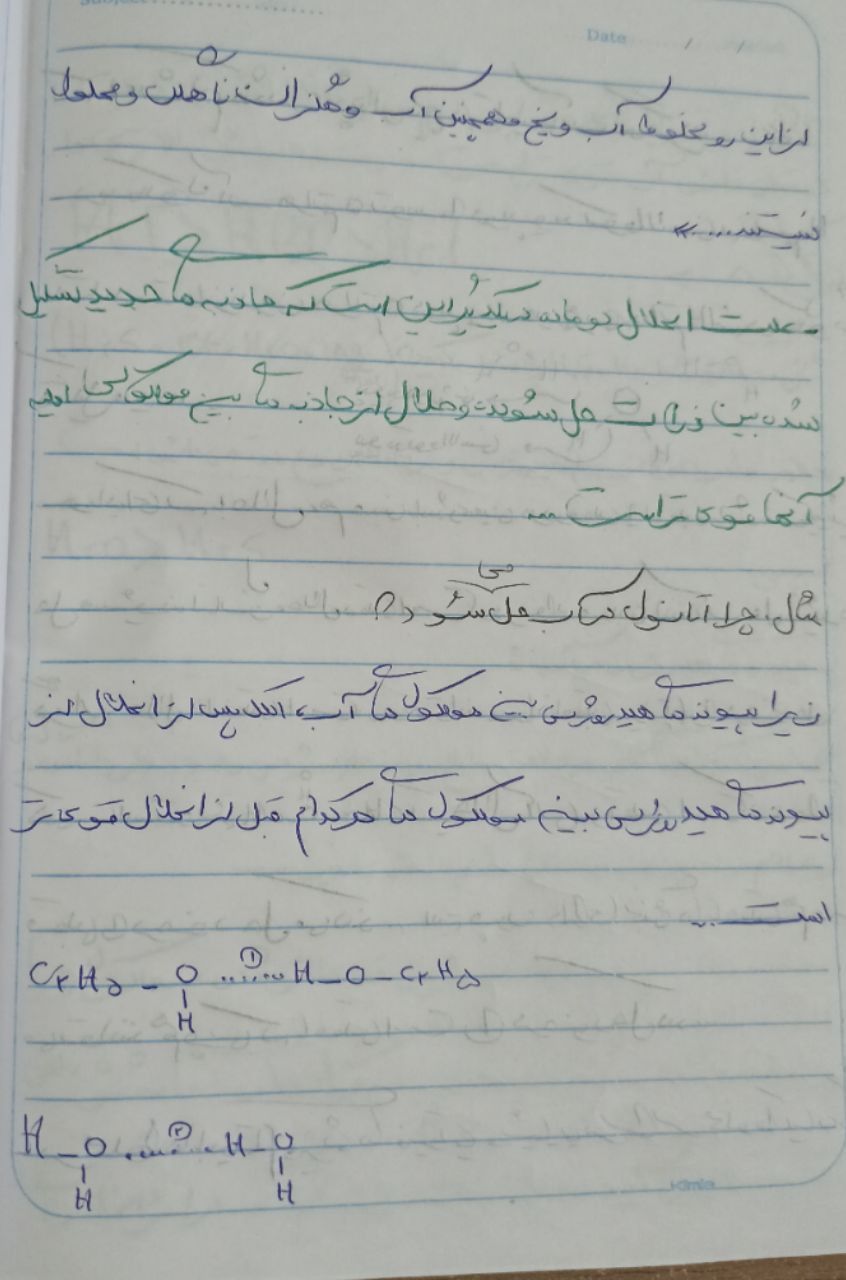 Subject
Date / /
از این رو مخلوط آب و یخ و همچنین آب و هگزان ناهمگن و محلول
نیستند...»
- علت انحلال دو ماده در یکدیگر این است که جاذبه ها جدید تشکیل
شده بین ذرات حل شونده و حلال از جاذبه ها بین مولکولی اولیه
آنها قوی تر است ...
مثال: چرا اتانول در آب حل می شود؟
زیرا پیوند های هیدروژنی بین مولکول های آب، الکل پس از انحلال از
پیوند های هیدروژنی بین مولکول های هر کدام قبل از انحلال قوی تر
است ...
C₂H₅ - O ...①... H - O - C₂H₅
H
H - O ...②... H - O
H H
Kimia